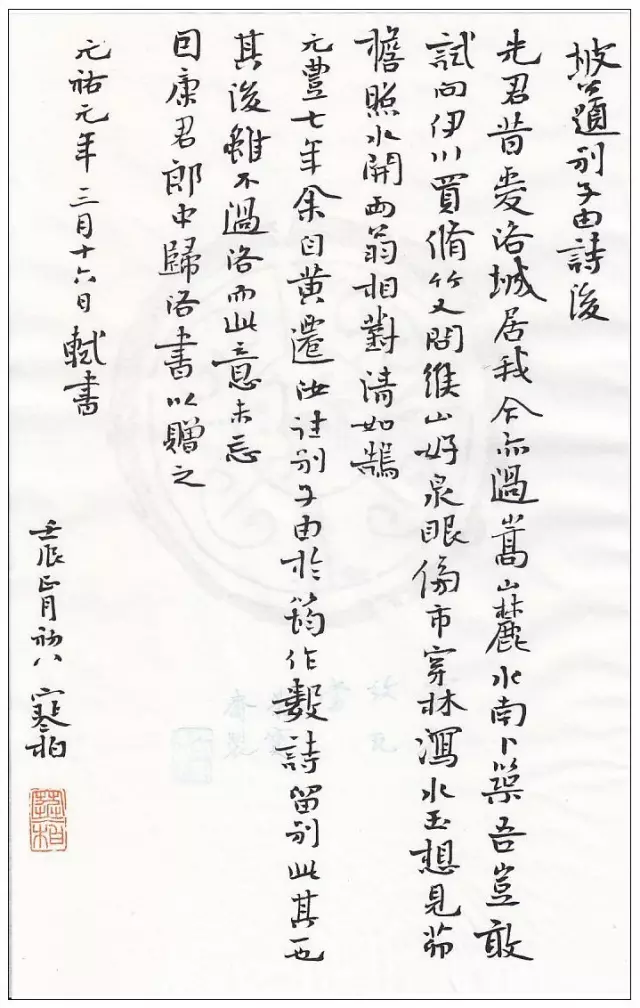 坡公題別子由詩後
先君昔愛洛城居我今亦過嵩山麓水南卜築吾豈敢
試向伊川買脩竹又問緱山好泉眼傍市穿林瀉冰玉想見茆
檐照水開兩翁相對清如鵠
元豐七年余自黃遷汝往別子由於筠作數詩留別此其一也
其後雖不過洛而此意未忘
因康君郎中歸洛書以贈之
元祐元年三月十六日軾書
壬辰正月初八 寒柏